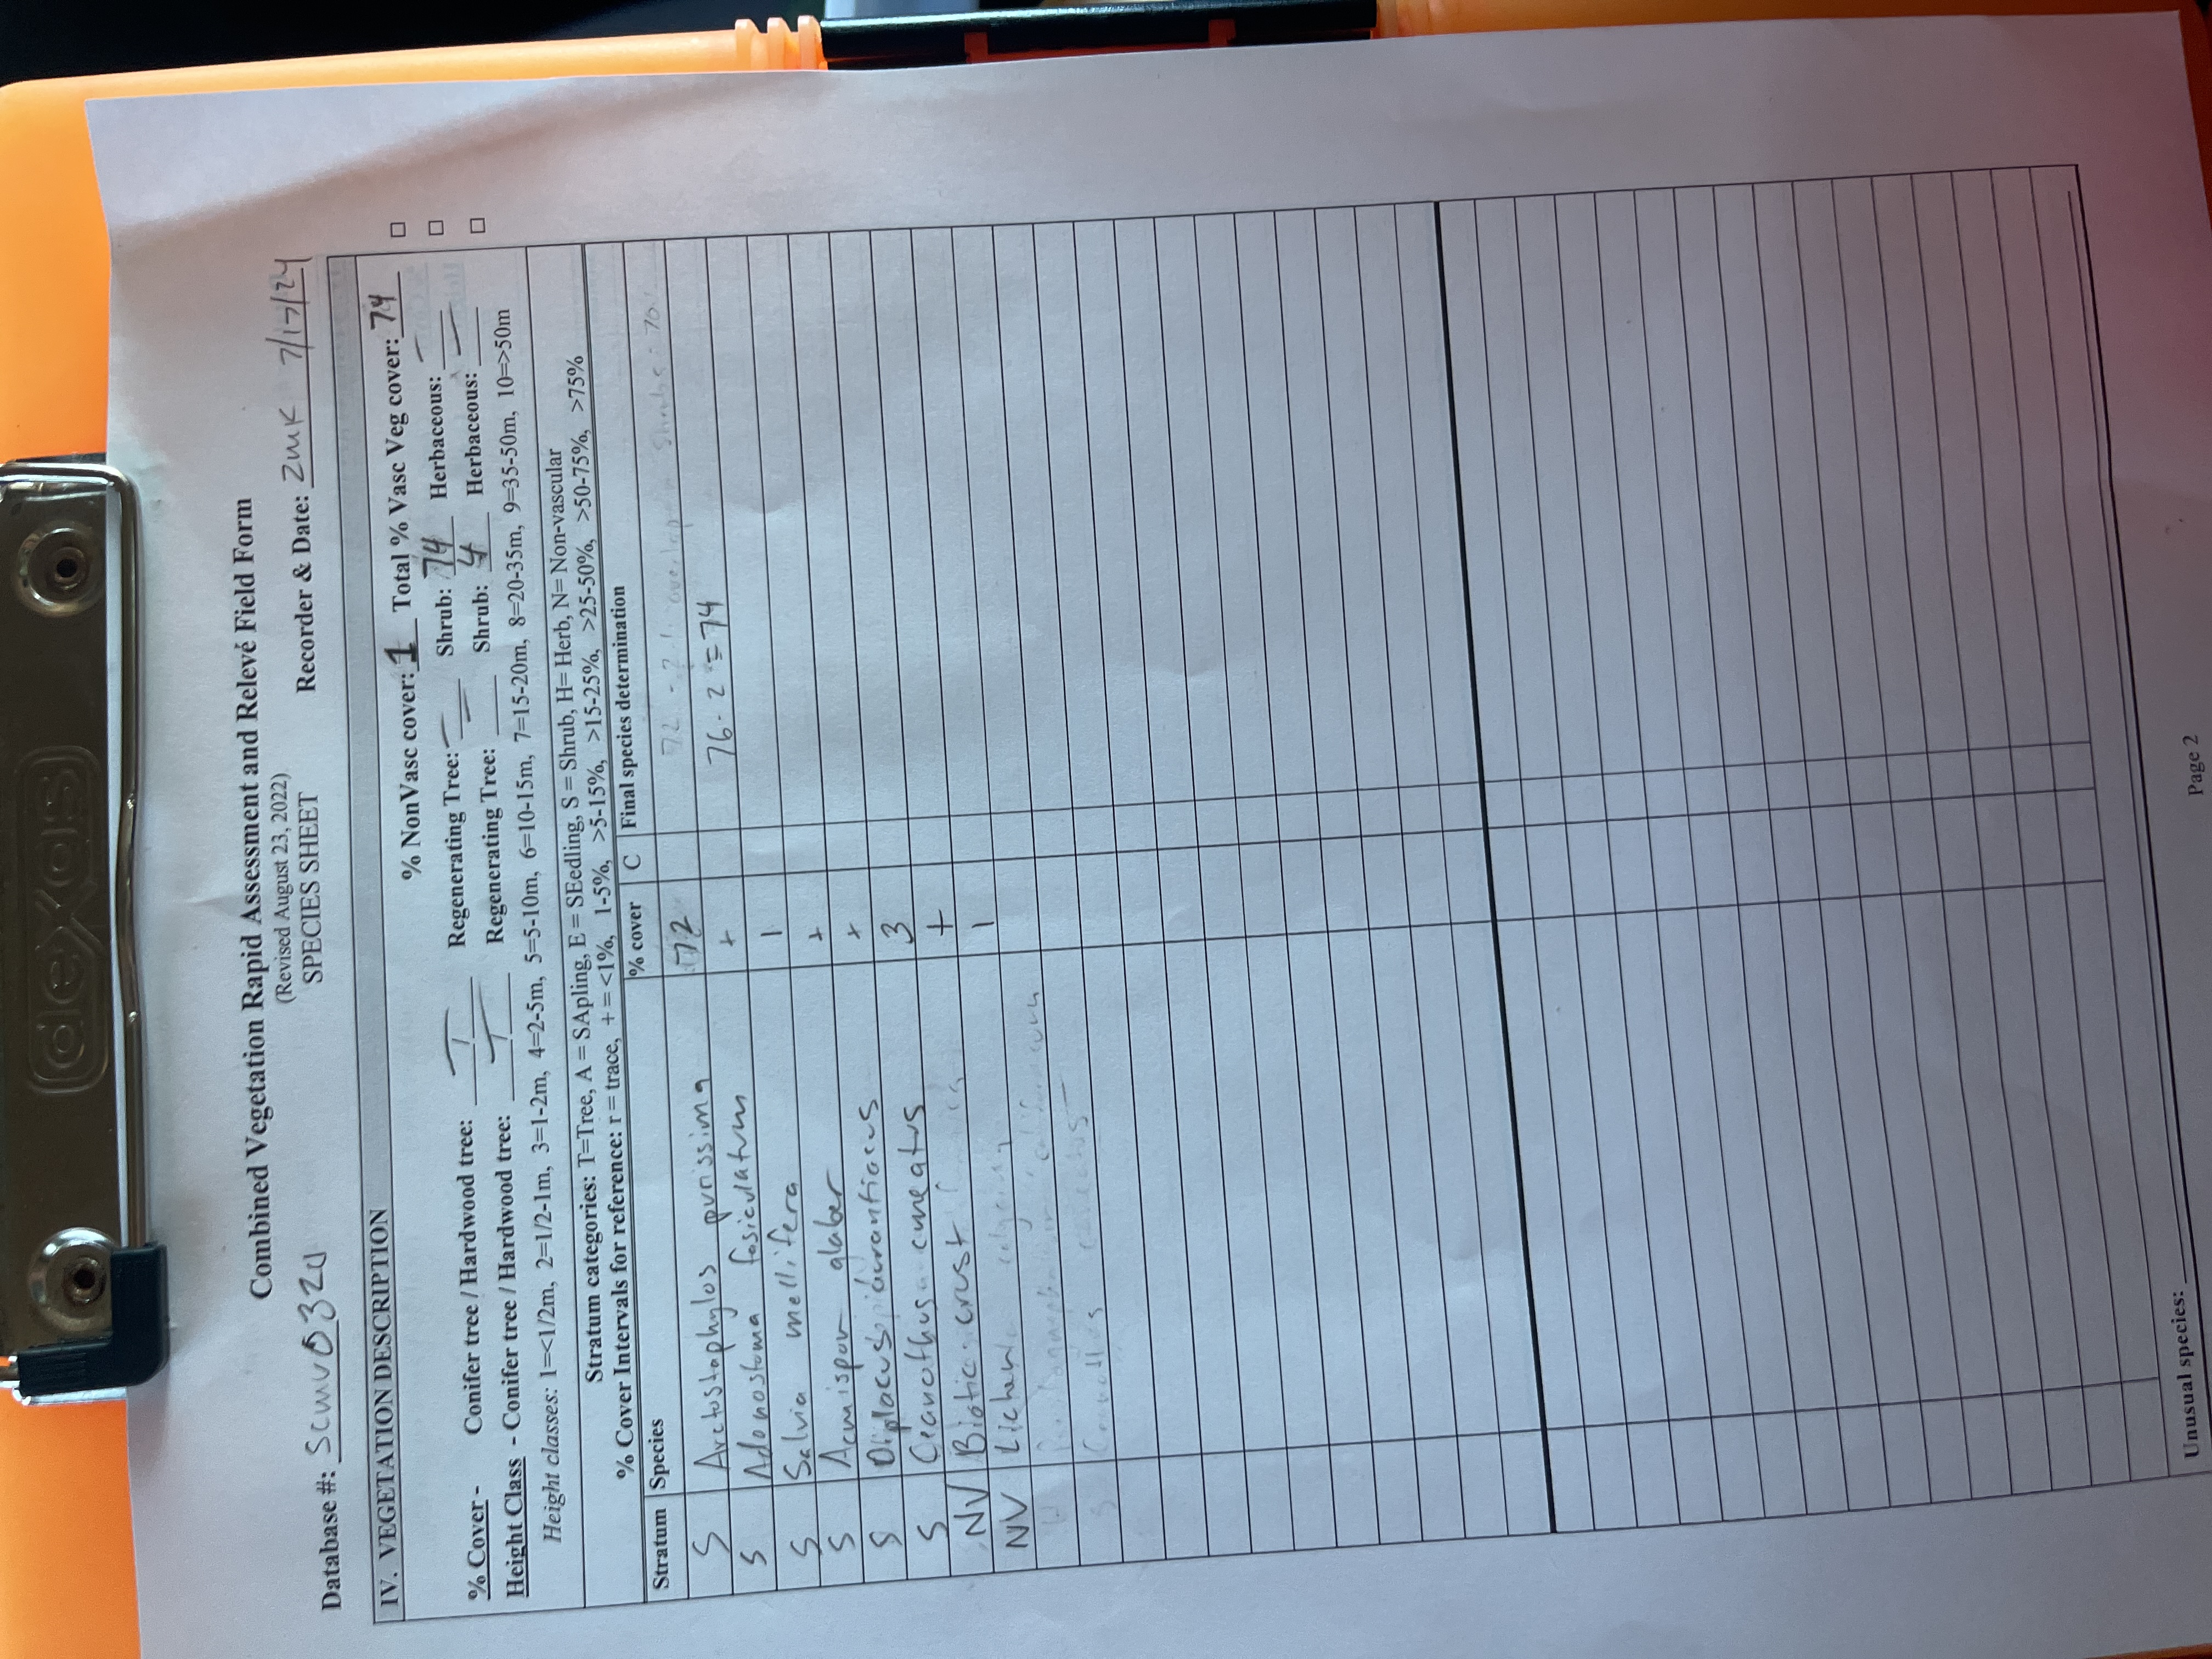 dexas
Combined Vegetation Rapid Assessment and Relevé Field Form
(Revised August 23, 2022)
SPECIES SHEET
Database #: SCMU0320 Recorder & Date: ZMK 7/17/24
IV. VEGETATION DESCRIPTION
% NonVasc cover: 1 Total % Vasc Veg cover: 74 □
% Cover - Conifer tree / Hardwood tree: — / — Regenerating Tree: — Shrub: 74 Herbaceous: — □
Height Class - Conifer tree / Hardwood tree: — / — Regenerating Tree: — Shrub: 4 Herbaceous: — □
Height classes: 1=<1/2m, 2=1/2-1m, 3=1-2m, 4=2-5m, 5=5-10m, 6=10-15m, 7=15-20m, 8=20-35m, 9=35-50m, 10=>50m
Stratum categories: T=Tree, A = SApling, E = SEedling, S = Shrub, H= Herb, N= Non-vascular
% Cover Intervals for reference: r = trace, + = <1%, 1-5%, >5-15%, >15-25%, >25-50%, >50-75%, >75%
Stratum Species % cover C Final species determination
S Arctostaphylos purissima 72
S Adonostoma fasiculatum + 76-2=74
S Salvia mellifera 1
S Acmispon glaber +
S Diplacus aurantiacus +
S Ceanothus cuneatus 3
NV Biotic crust +
NV Lichen 1
Unusual species:
Page 2